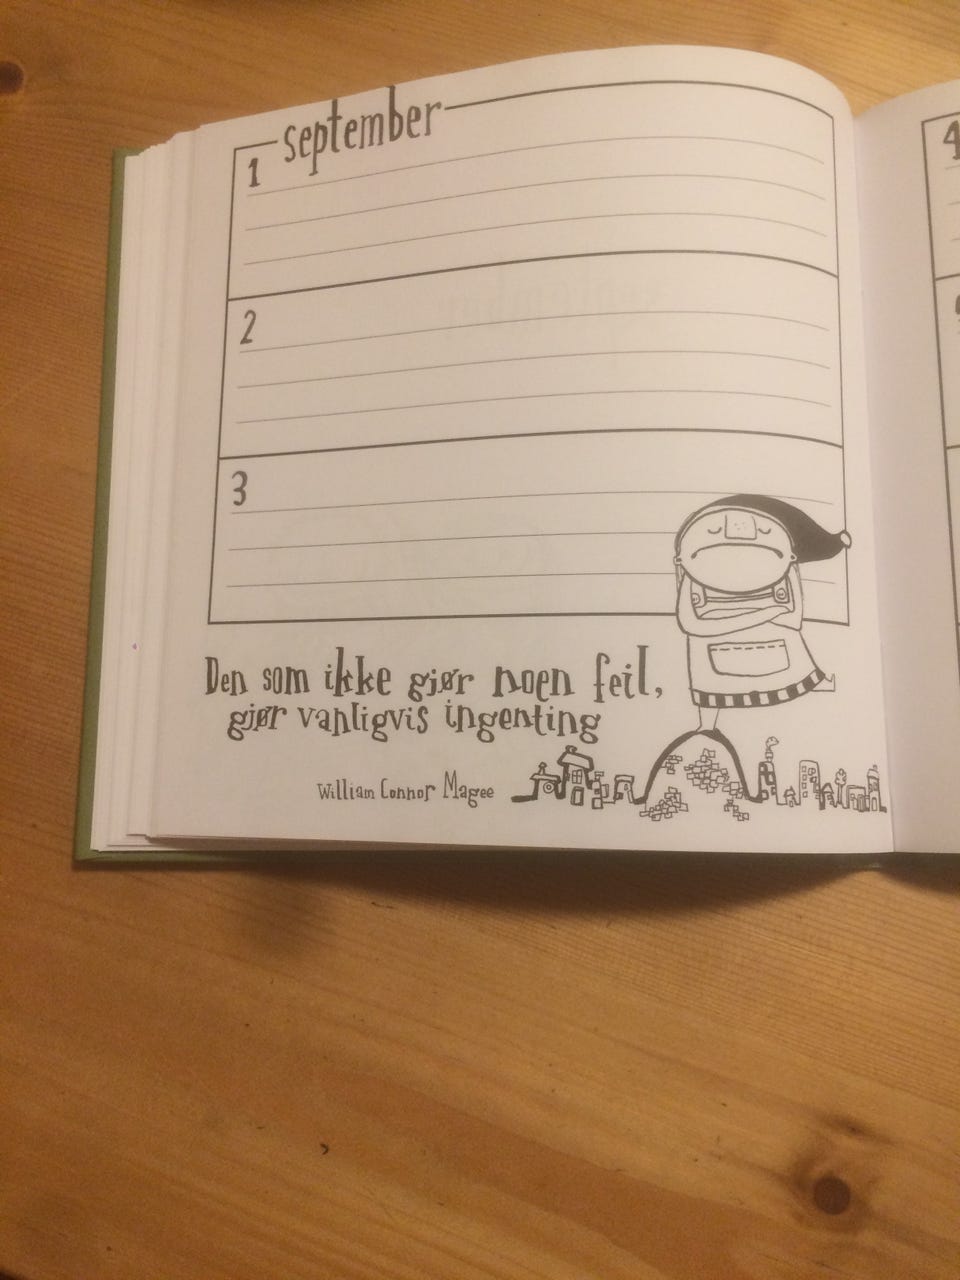 september
1
2
3
Den som ikke gjør noen feil,
gjør vanligvis ingenting
William Connor Magee
4